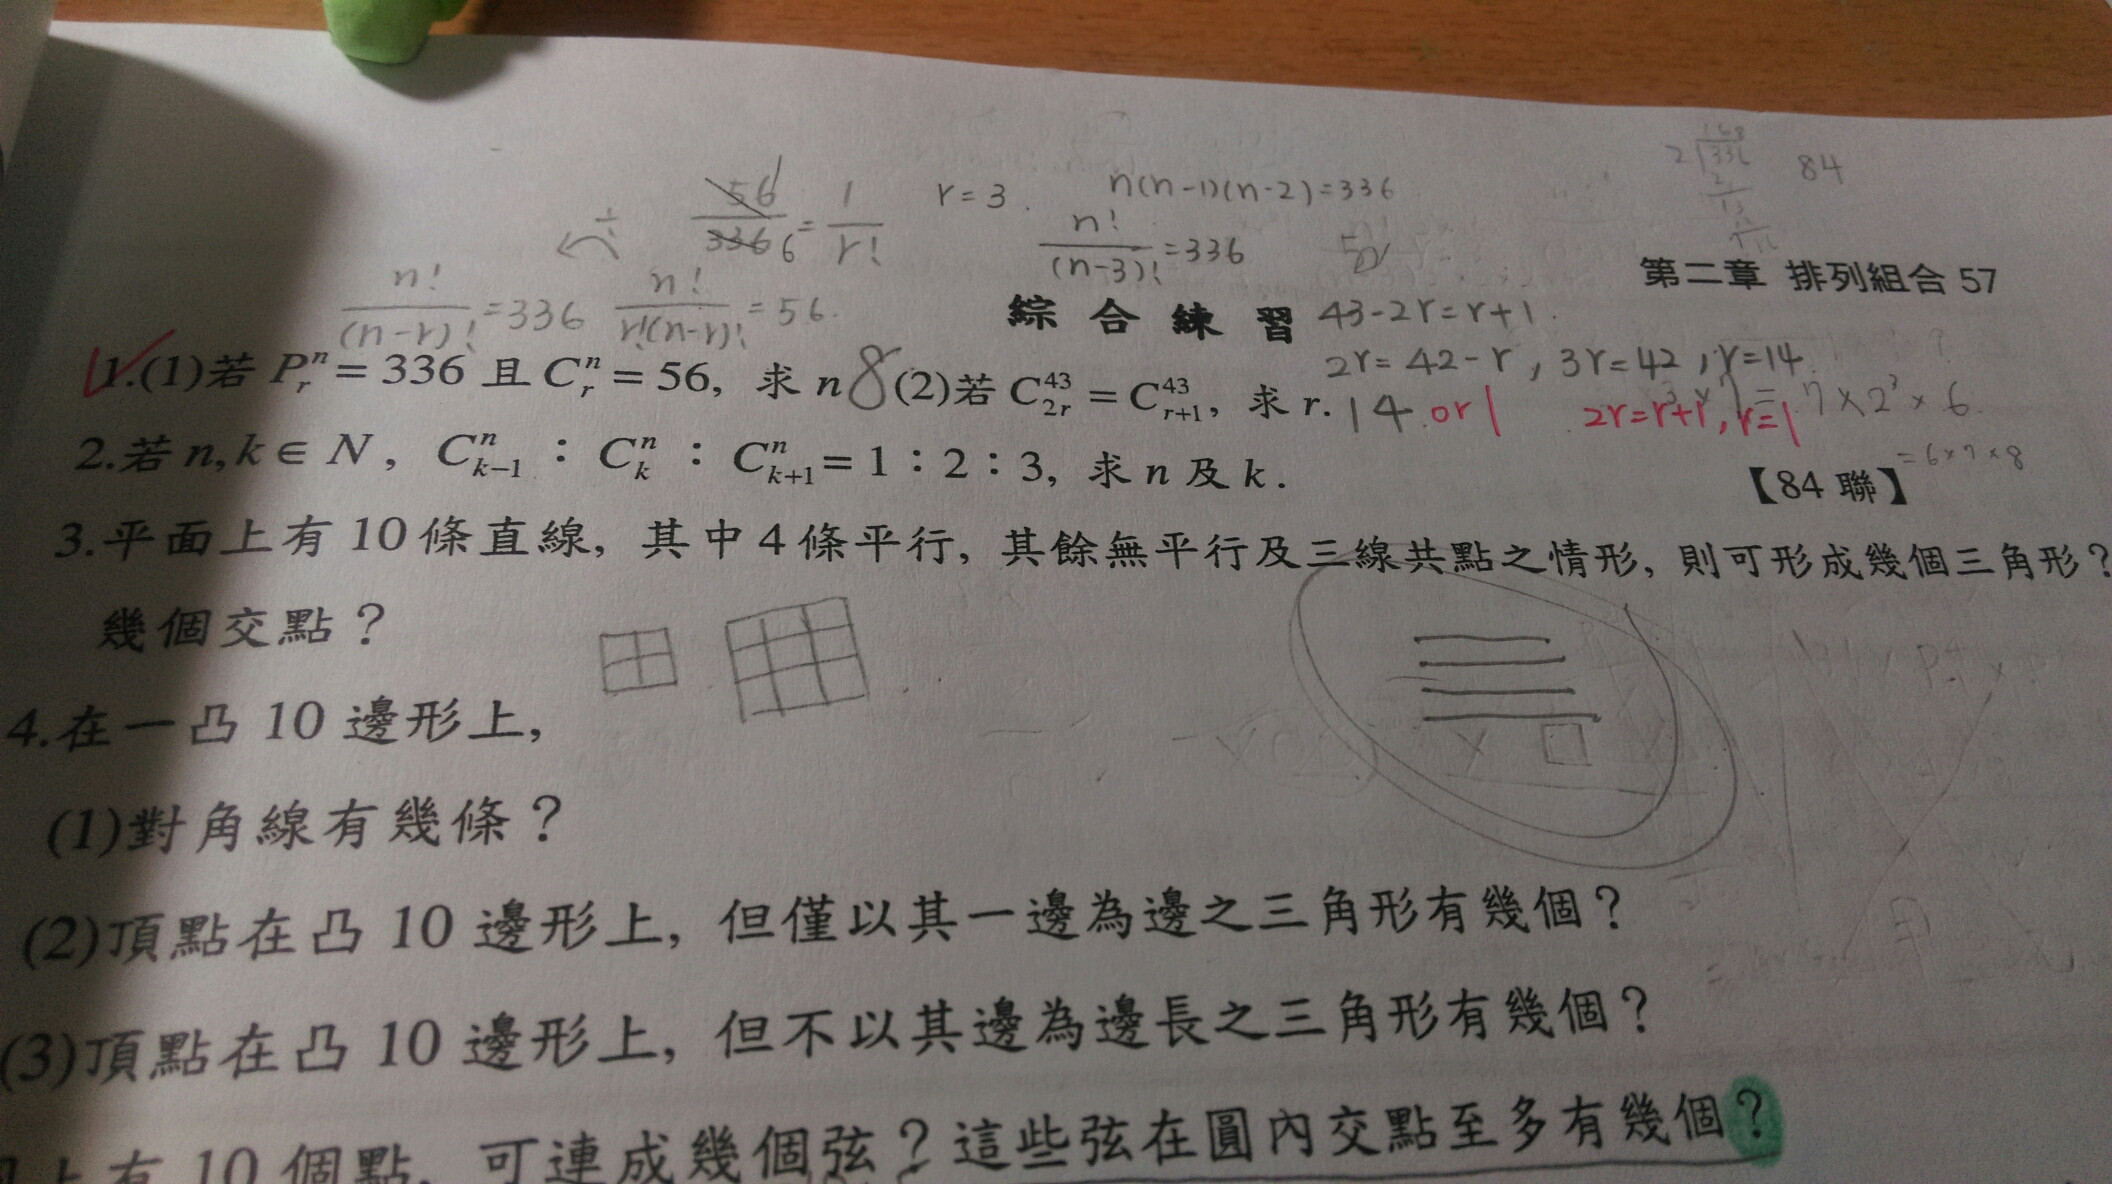 168
2 336 84
56/336 6 = 1/r! r = 3. n(n-1)(n-2)=336
÷ n!/(n-3)! =336
第二章 排列組合 57
n!/(n-r)! =336 n!/r!(n-r)! = 56.
綜合練習 43-2r=r+1.
2r= 42-r, 3r=42, r=14.
1.(1)若 P^n_r = 336 且 C^n_r = 56, 求 n 8 (2)若 C^43_2r = C^43_r+1, 求 r. 14 or 1 2r=r+1, r=1 7×2³×6
=6×7×8
2.若 n,k∈N, C^n_k-1 : C^n_k : C^n_k+1 = 1:2:3, 求 n 及 k. 【84 聯】
3.平面上有 10 條直線, 其中 4 條平行, 其餘無平行及三線共點之情形, 則可形成幾個三角形?
幾個交點?
4.在一凸 10 邊形上,
(1)對角線有幾條?
(2)頂點在凸 10 邊形上, 但僅以其一邊為邊之三角形有幾個?
(3)頂點在凸 10 邊形上, 但不以其邊為邊長之三角形有幾個?
上有 10 個點, 可連成幾個弦?這些弦在圓內交點至多有幾個?